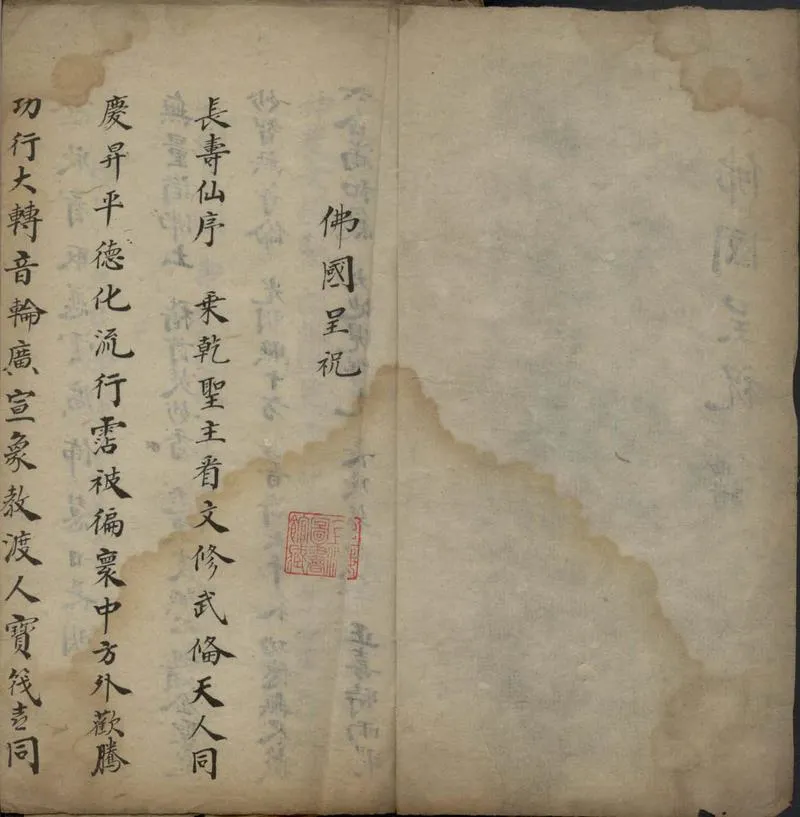 佛國呈祝
長壽仙序 乗乾聖主看文修武俻天人同
慶昇平德化流行霑被徧寰中方外歡騰
功行大轉音輪廣宣象教渡人寶筏壹同